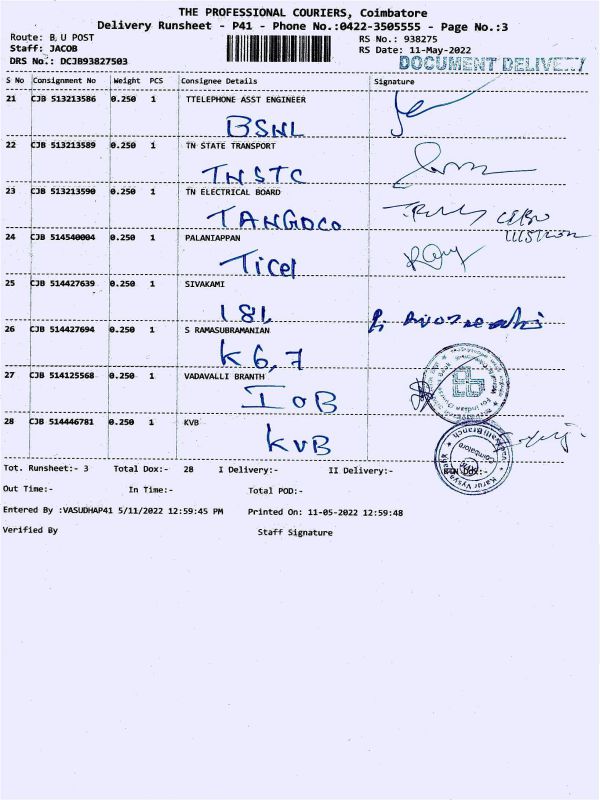 THE PROFESSIONAL COURIERS, Coimbatore
Delivery Runsheet - P41 - Phone No.:0422-3505555 - Page No.:3
Route: B, U POST RS No.: 938275
Staff: JACOB RS Date: 11-May-2022
DRS No.: DCJB93827503 DOCUMENT DELIVERY
S No Consignment No Weight PCS Consignee Details Signature
21 CJB 513213586 0.250 1 TTELEPHONE ASST ENGINEER
BSNL
22 CJB 513213589 0.250 1 TN STATE TRANSPORT
TNSTC
23 CJB 513213590 0.250 1 TN ELECTRICAL BOARD
TANGDCO
24 CJB 514540004 0.250 1 PALANIAPPAN
Ticel
25 CJB 514427639 0.250 1 SIVAKAMI
181
26 CJB 514427694 0.250 1 S RAMASUBRAMANIAN
K 6, 7
27 CJB 514125568 0.250 1 VADAVALLI BRANTH
IOB
28 CJB 514446781 0.250 1 KVB
KVB
Tot. Runsheet:- 3 Total Dox:- 28 I Delivery:- II Delivery:-
Out Time:- In Time:- Total POD:-
Entered By :VASUDHAP41 5/11/2022 12:59:45 PM Printed On: 11-05-2022 12:59:48
Verified By Staff Signature